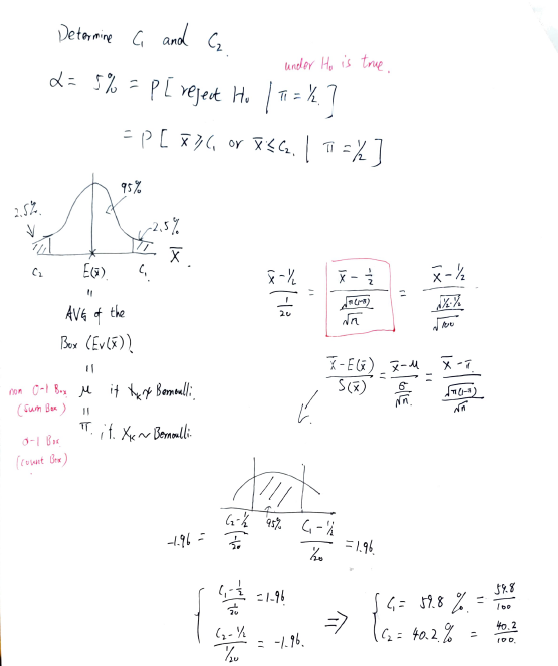 Determine C₁ and C₂.
under H₀ is true.
α = 5% = P[ reject H₀ | π = ½ ]
= P[ x̄ ≥ C₁ or x̄ ≤ C₂. | π = ½ ]
95%
2.5%.
2.5%
x̄.
C₂ E(x̄). C₁
"
AVG of the
Box (Ev(x̄))
"
non 0-1 Box μ if Xₖ ≁ Bernoulli.
(Sum Box) "
0-1 Box π. if. Xₖ ~ Bernoulli.
(count Box)
(x̄ - ½) / (1/20) = (x̄ - 1/2) / (√(π(1-π)) / √n) = (x̄ - ½) / (√(½·½) / √100)
(x̄ - E(x̄)) / S(x̄) = (x̄ - μ) / (σ / √n) = (x̄ - π) / (√(π(1-π)) / √n)
-1.96 = (C₂ - ½) / (1/20) 95% (C₁ - ½) / (1/20) = 1.96.
(C₁ - 1/2) / (1/20) = 1.96 ⇒ C₁ = 59.8 % = 59.8/100
(C₂ - ½) / (1/20) = -1.96. C₂ = 40.2 % = 40.2/100.